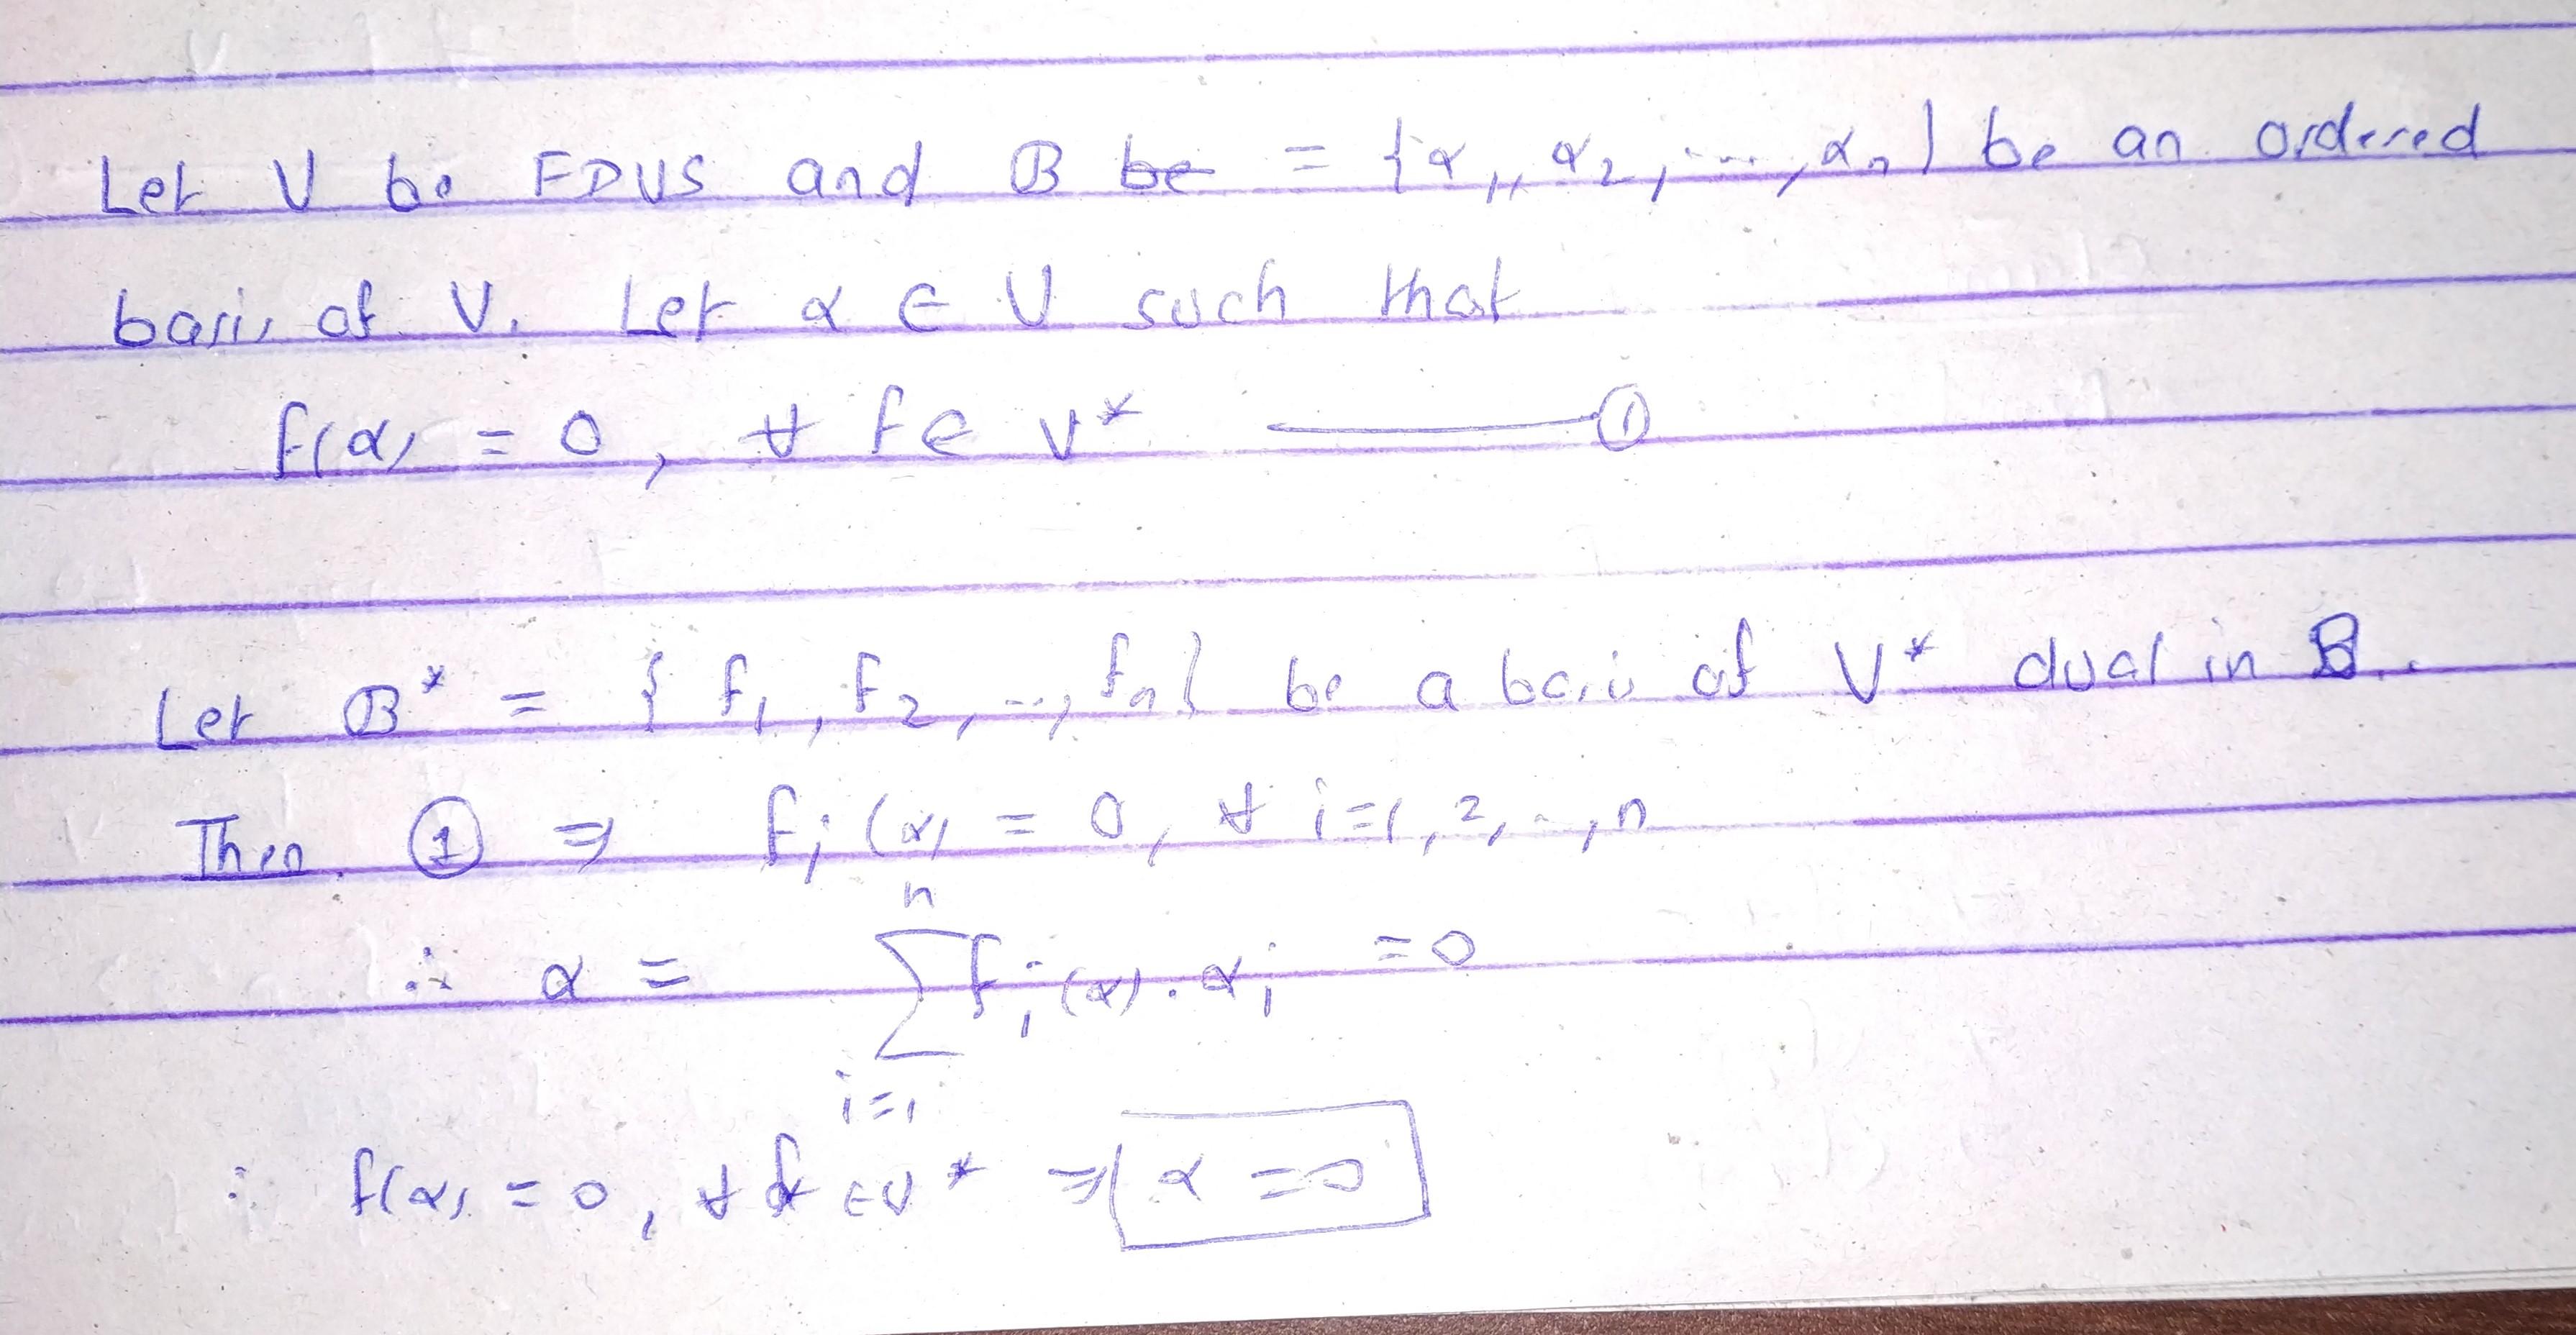 Let V be FDVS and B be = {α₁, α₂, ..., αₙ} be an ordered
basis of V. Let α ∈ V such that
f(α) = 0, ∀ f ∈ V* ——— ①
Let B* = {f₁, f₂, ..., fₙ} be a basis of V* dual in B.
Then ① ⇒ fᵢ(α) = 0, ∀ i=1, 2, .., n
∴ α = ∑ᵢ₌₁ⁿ fᵢ(α) . αᵢ = 0
∴ f(α) = 0, ∀ f ∈ V* ⇒ α = 0